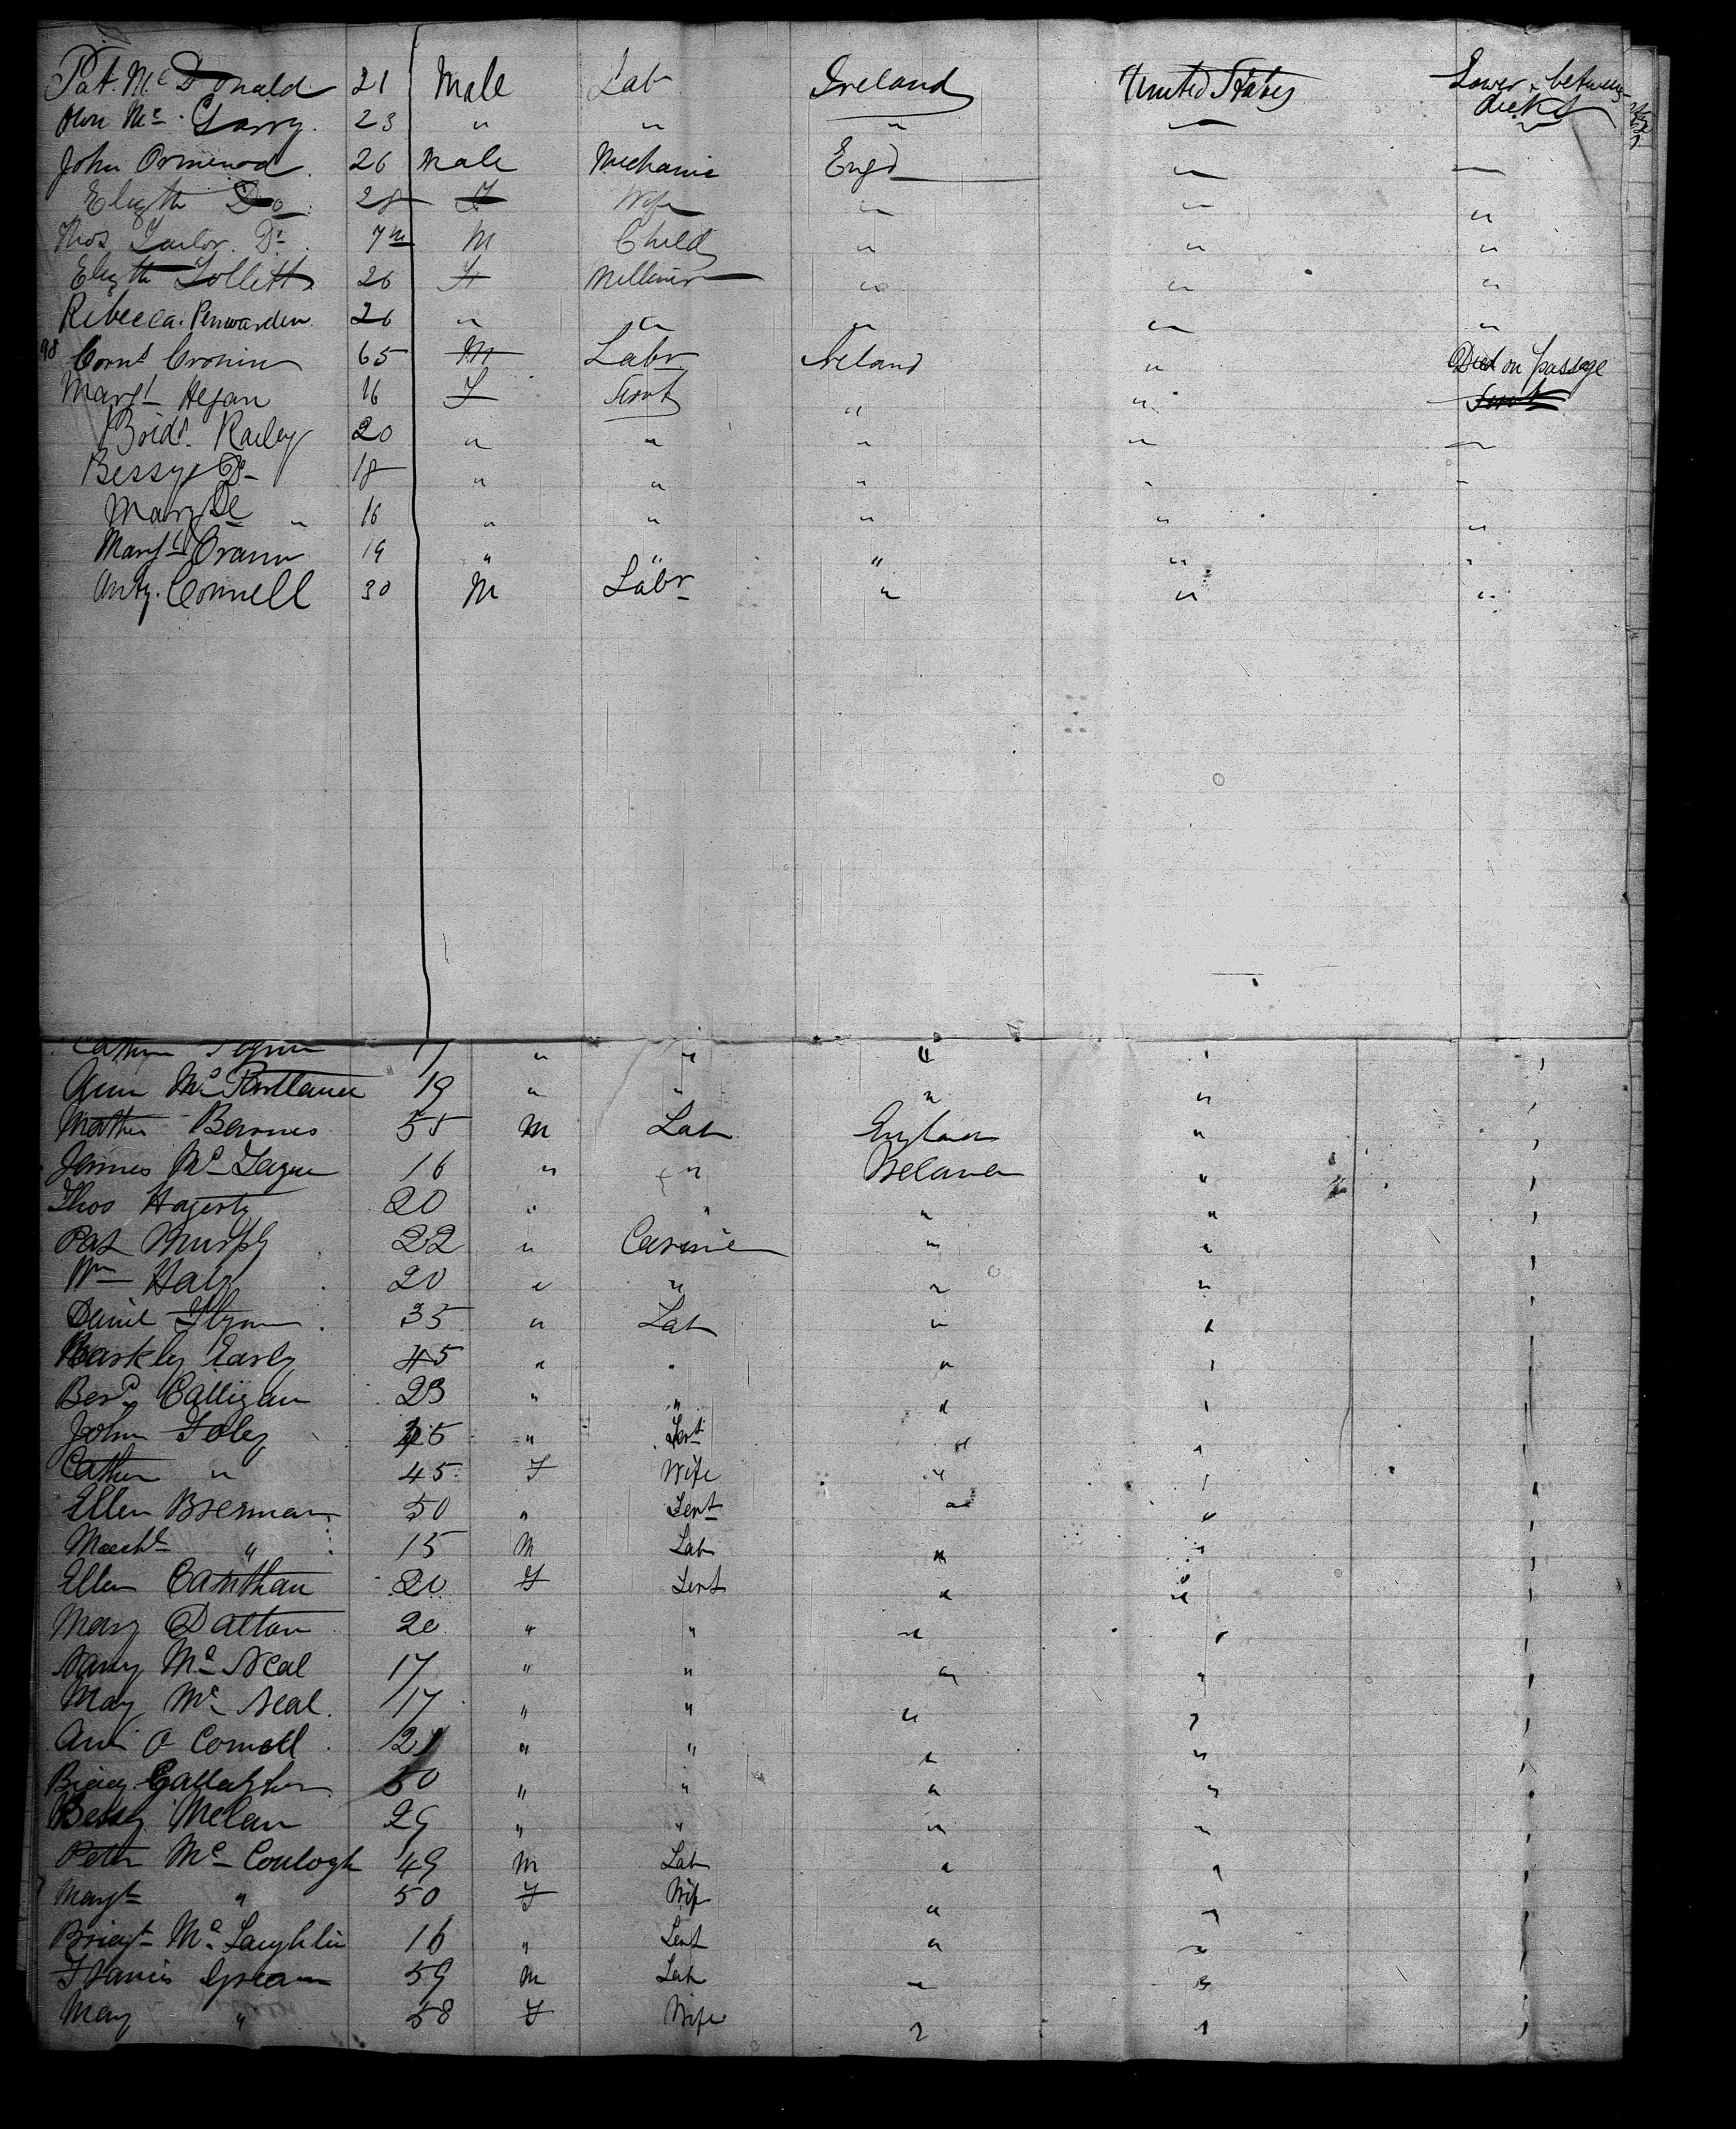 Pat. Mc Donald 21 Male Lab Ireland United States Lower & between decks
Mc Garry. 23 " " " " "
John Ormerod 26 Male Mechanic Engd " "
Elizth Do 28 F Wife " " "
Thos Taylor Do 7m M Child " " "
Elizth Follett 26 F Milliner " " "
Rebecca Penwarden 26 " " " " "
98 Corns Cronin 65 M Labr Ireland " Died on passage
Margt Hegan 16 F Servt " "
Bridt. Railey 20 " " " " "
Bessy Do 18 " " " " "
Mary Do " 16 " " " " "
Margt 19 " " " " "
Anty. Connell 30 M Labr " " "
Cathne Flynn 17 " " " " "
Ann Mc Partland 19 " " " " "
Mathew Barnes 55 M Lab England " "
James Mc 16 " " Ireland " "
Thos Hagerty 20 " " " " "
Pat Murphy 22 " " " "
Wm Haly 20 " " " " "
Daniel Flynn 35 " Lab " " "
Early 45 " " " " "
Berd Calligan 23 " " " " "
John Foley 45 " Servt " " "
Cather " 45 F Wife " " "
Ellen Brennan 50 " Servt " " "
Michl " 15 M Lab " " "
Ellen 20 F Servt " " "
Mary Dalton 20 " " " " "
Nancy Mc Neal 17 " " " " "
Mary Mc Neal 17 " " " " "
Ann O Connell 21 " " " " "
Gallagher 50 " " " " "
Bessy 29 " " " " "
Peter Mc Coulogh 49 M Lab " " "
Margt " 50 F Wife " " "
Bridgt Mc Laughlin 16 " Servt " " "
Francis 59 M Lab " " "
Mary " 58 F Wife " " "